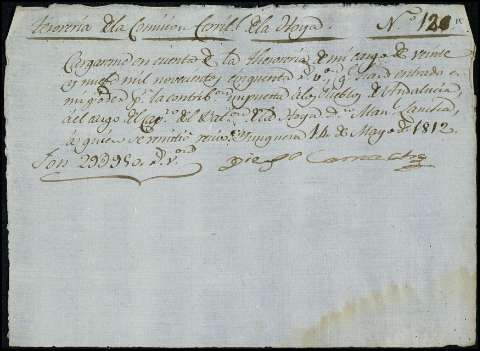 Tesorería de la Comision Contril. de la Hoya. N.o 120
Cargaronse en cuenta de la Thesorería de mi cargo de veinte
y nueve mil novecientos cinquenta r.s v.n q.e han entrado en
mi poder p.r la contrib.n impuesta á los Pueblos de Andalucia,
á el cargo del Cap.n del de la Hoya d.n Man.l
á quien se remitió recivo. Junquera 14 de Mayo de 1812
Son 29d950. r.s v.on Diego Camacho